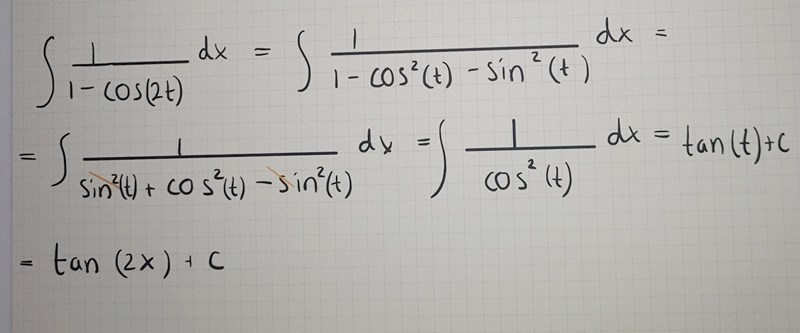 ∫ 1/(1 - cos(2t)) dx = ∫ 1/(1 - cos²(t) - sin²(t)) dx =
= ∫ 1/(sin²(t) + cos²(t) - sin²(t)) dx = ∫ 1/(cos²(t)) dx = tan(t)+c
= tan (2x) + c